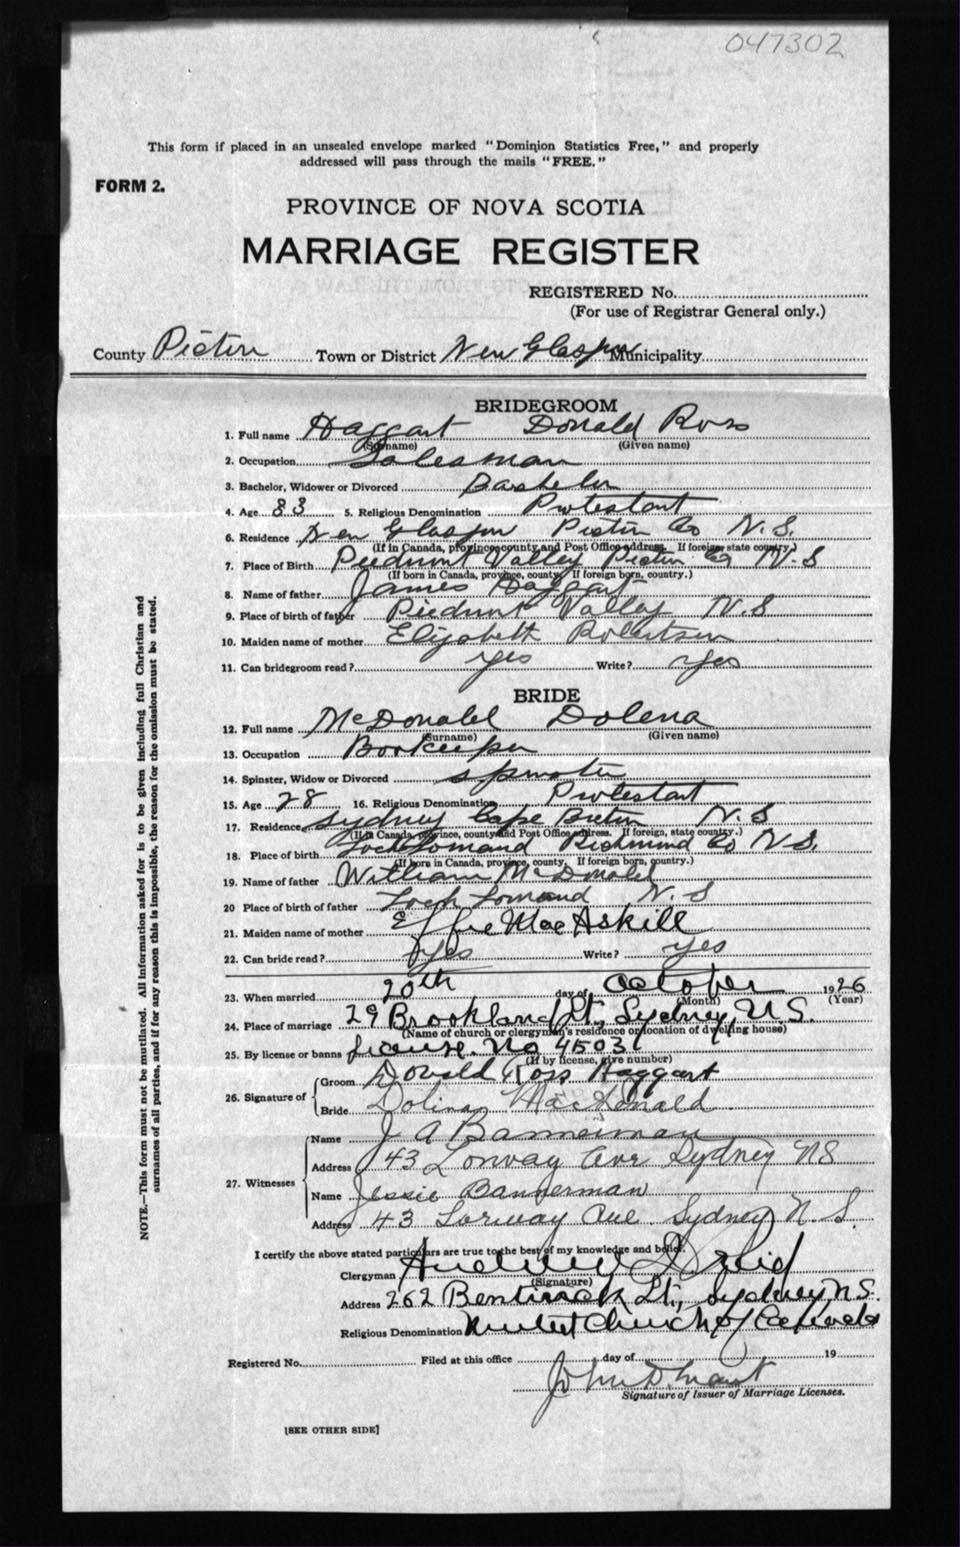 047302
This form if placed in an unsealed envelope marked "Dominion Statistics Free," and properly
addressed will pass through the mails "FREE."
FORM 2.
PROVINCE OF NOVA SCOTIA
MARRIAGE REGISTER
REGISTERED No.
(For use of Registrar General only.)
County Pictou Town or District New Glasgow Municipality
BRIDEGROOM
1. Full name Haggart Donald Ross
(Surname) (Given name)
2. Occupation Salesman
3. Bachelor, Widower or Divorced Bachelor
4. Age 33 5. Religious Denomination Protestant
6. Residence New Glasgow Pictou Co N.S.
(If in Canada, province, county and Post Office address. If foreign, state country.)
7. Place of Birth Piedmont Valley Pictou Co N.S
(If born in Canada, province, county. If foreign born, country.)
8. Name of father James Haggart
9. Place of birth of father Piedmont Valley N.S
10. Maiden name of mother Elizabeth Robertson
11. Can bridegroom read? yes Write? yes
BRIDE
12. Full name McDonald Dolena
(Surname) (Given name)
13. Occupation Bookeeper
14. Spinster, Widow or Divorced spinster
15. Age 28 16. Religious Denomination Protestant
17. Residence Sydney Cape Breton N.S
(If in Canada, province, county and Post Office address. If foreign, state country.)
18. Place of birth Loch Lomand Richmond Co N.S.
(If born in Canada, province, county. If foreign born, country.)
19. Name of father William McDonald
20 Place of birth of father Loch Lomand N.S
21. Maiden name of mother Effie MacAskill
22. Can bride read? yes Write? yes
23. When married 20th day of October 1926
(Month) (Year)
24. Place of marriage 29 Brookland St., Sydney, N.S.
(Name of church or clergyman's residence or location of dwelling house)
25. By license or banns license. No 45031
(If by license, give number)
26. Signature of Groom Donald Ross Haggart
Bride Dolina MacDonald
27. Witnesses Name J A Bannerman
Address 43 Lorway Ave Sydney NS
Name Jessie Bannerman
Address 43 Lorway Ave. Sydney N.S.
I certify the above stated particulars are true to the best of my knowledge and belief.
Clergyman
(Signature)
Address 262 Bentinck St., Sydney, N.S.
Religious Denomination United Church of Canada
Registered No. Filed at this office day of 19
John D.
Signature of Issuer of Marriage Licenses.
[SEE OTHER SIDE]
NOTE.—This form must not be mutilated. All information asked for is to be given including full Christian and
surnames of all parties, and if for any reason this is impossible, the reason for the omission must be stated.